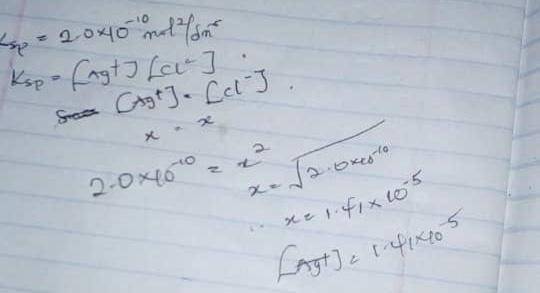 Ksp = 2.0×10⁻¹⁰ mol²/dm⁻⁶
Ksp = [Ag⁺] [Cl⁻]
[Ag⁺] = [Cl⁻].
x = x
2.0×10⁻¹⁰ = x²
x = √2.0×10⁻¹⁰
∴ x = 1.41 × 10⁻⁵
[Ag⁺] = 1.41×10⁻⁵